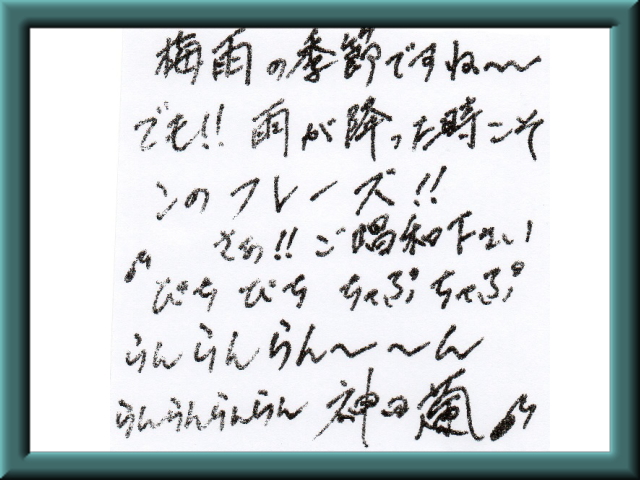 梅雨の季節ですね〜〜
でも!! 雨が降った時こそ
このフレーズ!!
さぁ!! ご唱和下さい
♪ぴち ぴち ちゃぷ ちゃぷ
らんらんらん〜〜〜ん
らんらんらんらん 神田蘭♪